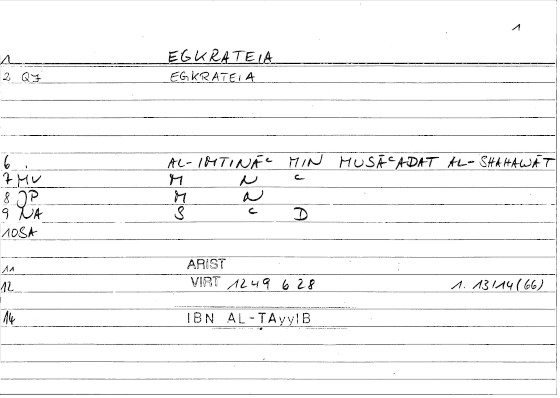 1
1 EGKRATEIA
2 QJ EGKRATEIA
6 . AL-IMTINĀᶜ MIN MUSĀᶜADAT AL-SHAHAWĀT
7 MV M N ᶜ
8 JP M N
9 NA S ᶜ D
10 SA
11 ARIST
12 VIRT 1249 b 28 1. 13/14 (66)
14 IBN AL-ṬAyyIB